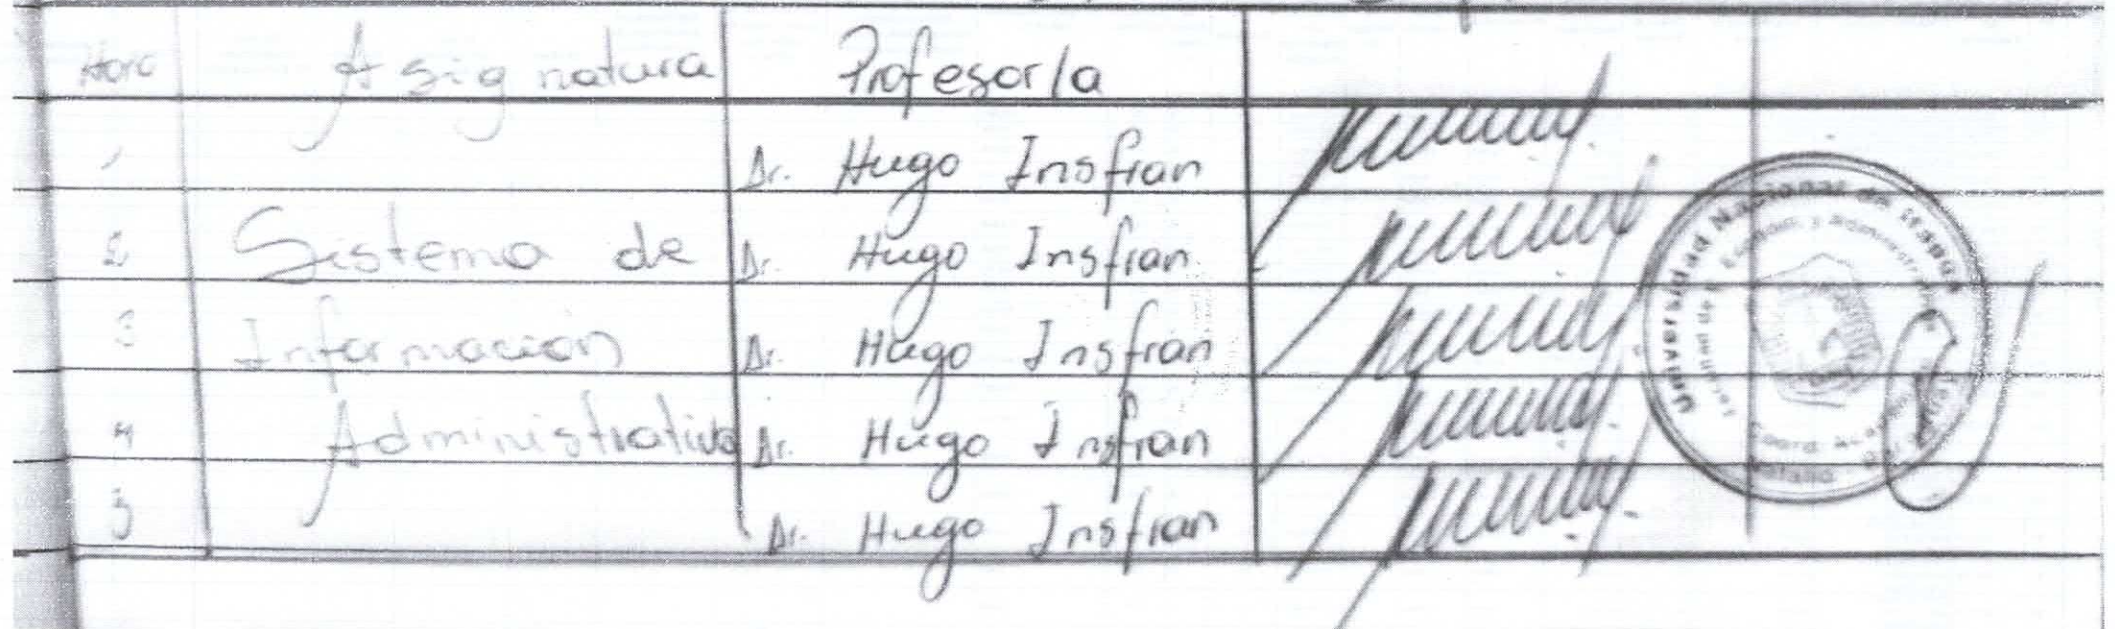 Hora Asignatura Profesor/a
1 Dr. Hugo Insfran
2 Sistema de Dr. Hugo Insfran
3 Información Dr. Hugo Insfran
4 Administrativa Dr. Hugo Insfran
5 Dr. Hugo Insfran
Universidad Nacional de Itapúa